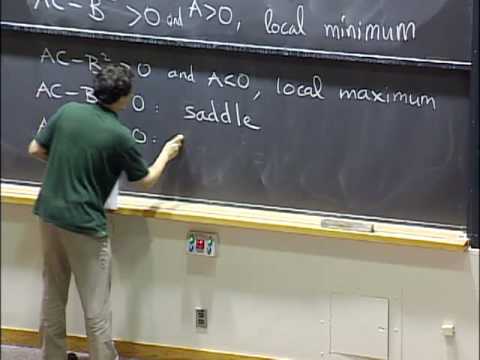 AC-B² >0 and A>0, local minimum
AC-B² >0 and A<0, local maximum
AC-B 0: saddle
A 0: